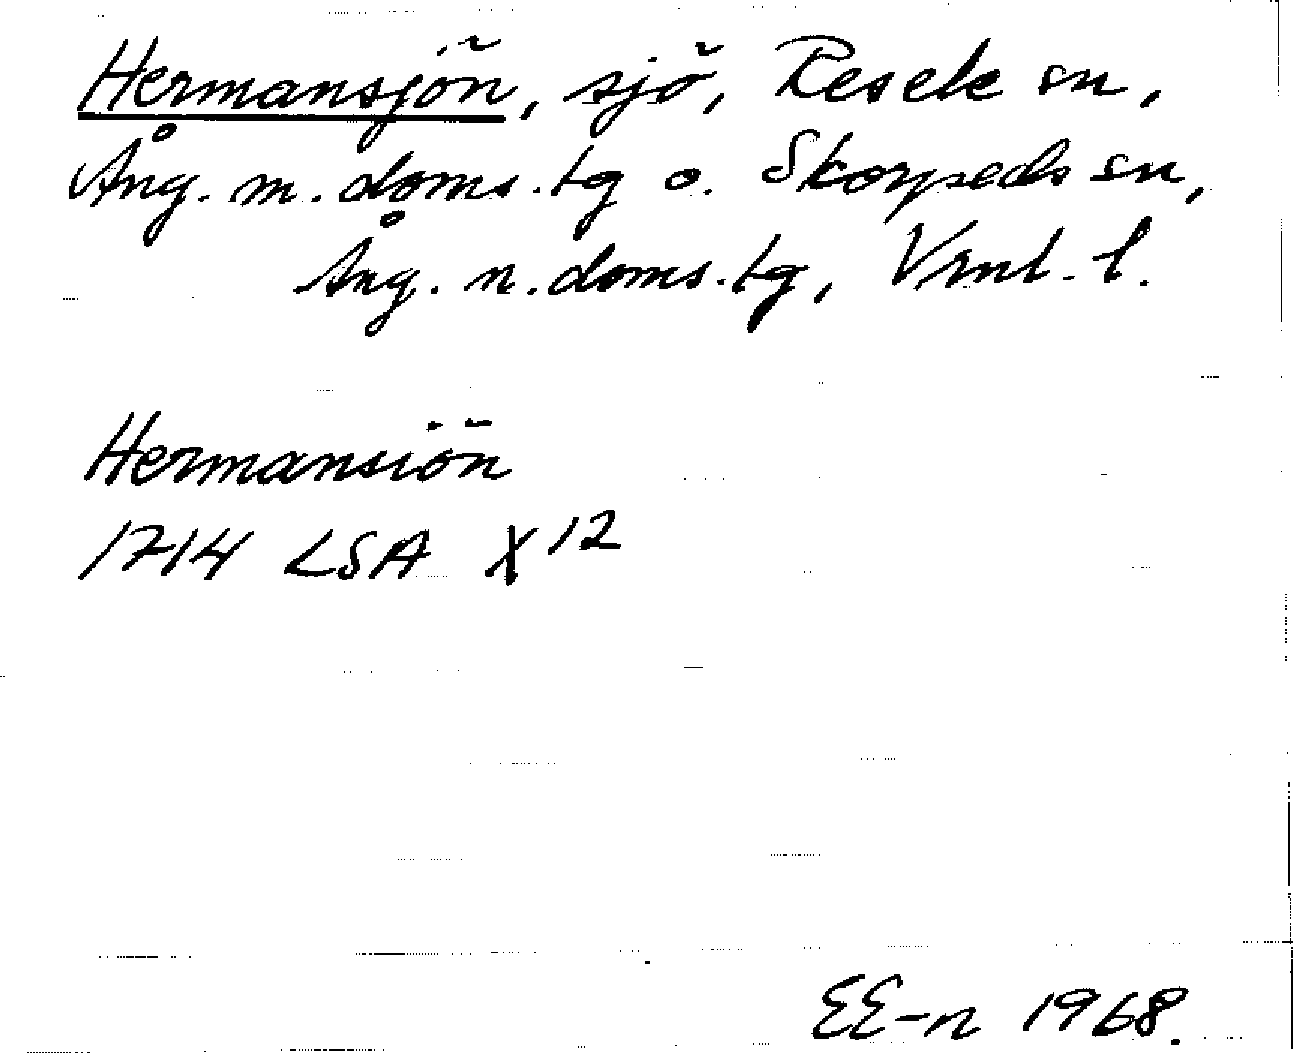 Hermansjön, sjö, Resele sn,
Ång. m. doms. tg o. Skorpeds sn,
Ång. n. doms. tg, Vrnl. l.
Hermansiön
1714 LSA X 12
EE-n 1968.